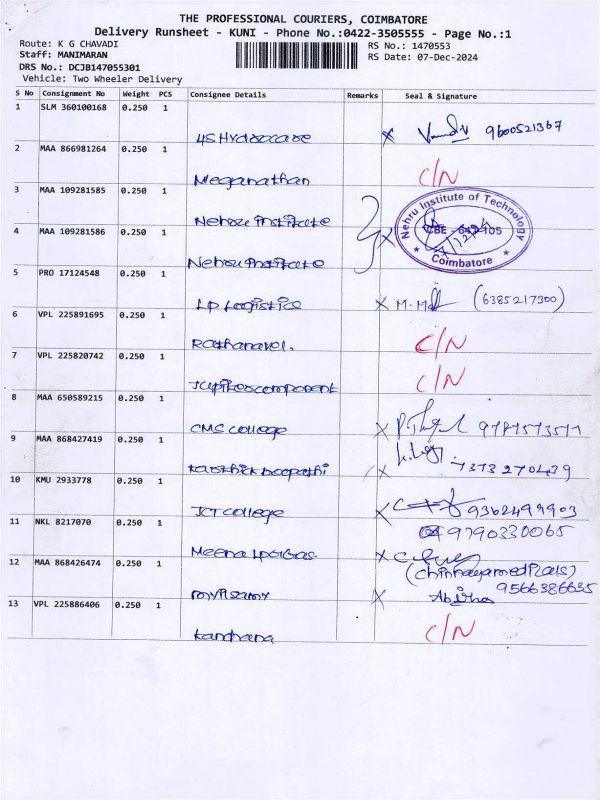 THE PROFESSIONAL COURIERS, COIMBATORE
Delivery Runsheet - KUNI - Phone No.:0422-3505555 - Page No.:1
Route: K G CHAVADI
RS No.: 1470553
Staff: MANIMARAN
RS Date: 07-Dec-2024
DRS No.: DCJB147055301
Vehicle: Two Wheeler Delivery
S No Consignment No Weight PCS Consignee Details Remarks Seal & Signature
1 SLM 360100168 0.250 1
4S Hydrocare 9600521367
2 MAA 866981264 0.250 1
Meganathan C/N
3 MAA 109281585 0.250 1
Nehru Institute
4 MAA 109281586 0.250 1
Nehru Institute
Nehru Institute of Technology
CBE - 641 105
Coimbatore
5 PRO 17124548 0.250 1
LP Logistics (6385217300)
6 VPL 225891695 0.250 1
Rathanavel. C/N
7 VPL 225820742 0.250 1
C/N
8 MAA 650589215 0.250 1
CMS College
9 MAA 868427419 0.250 1
7373270439
10 KMU 2933778 0.250 1
JCT College 9362499903
11 NKL 8217070 0.250 1
9790330065
Meena
12 MAA 868426474 0.250 1
(Chinnayamedicals)
9566386635
mylsamy
13 VPL 225886406 0.250 1
Kandhana C/N